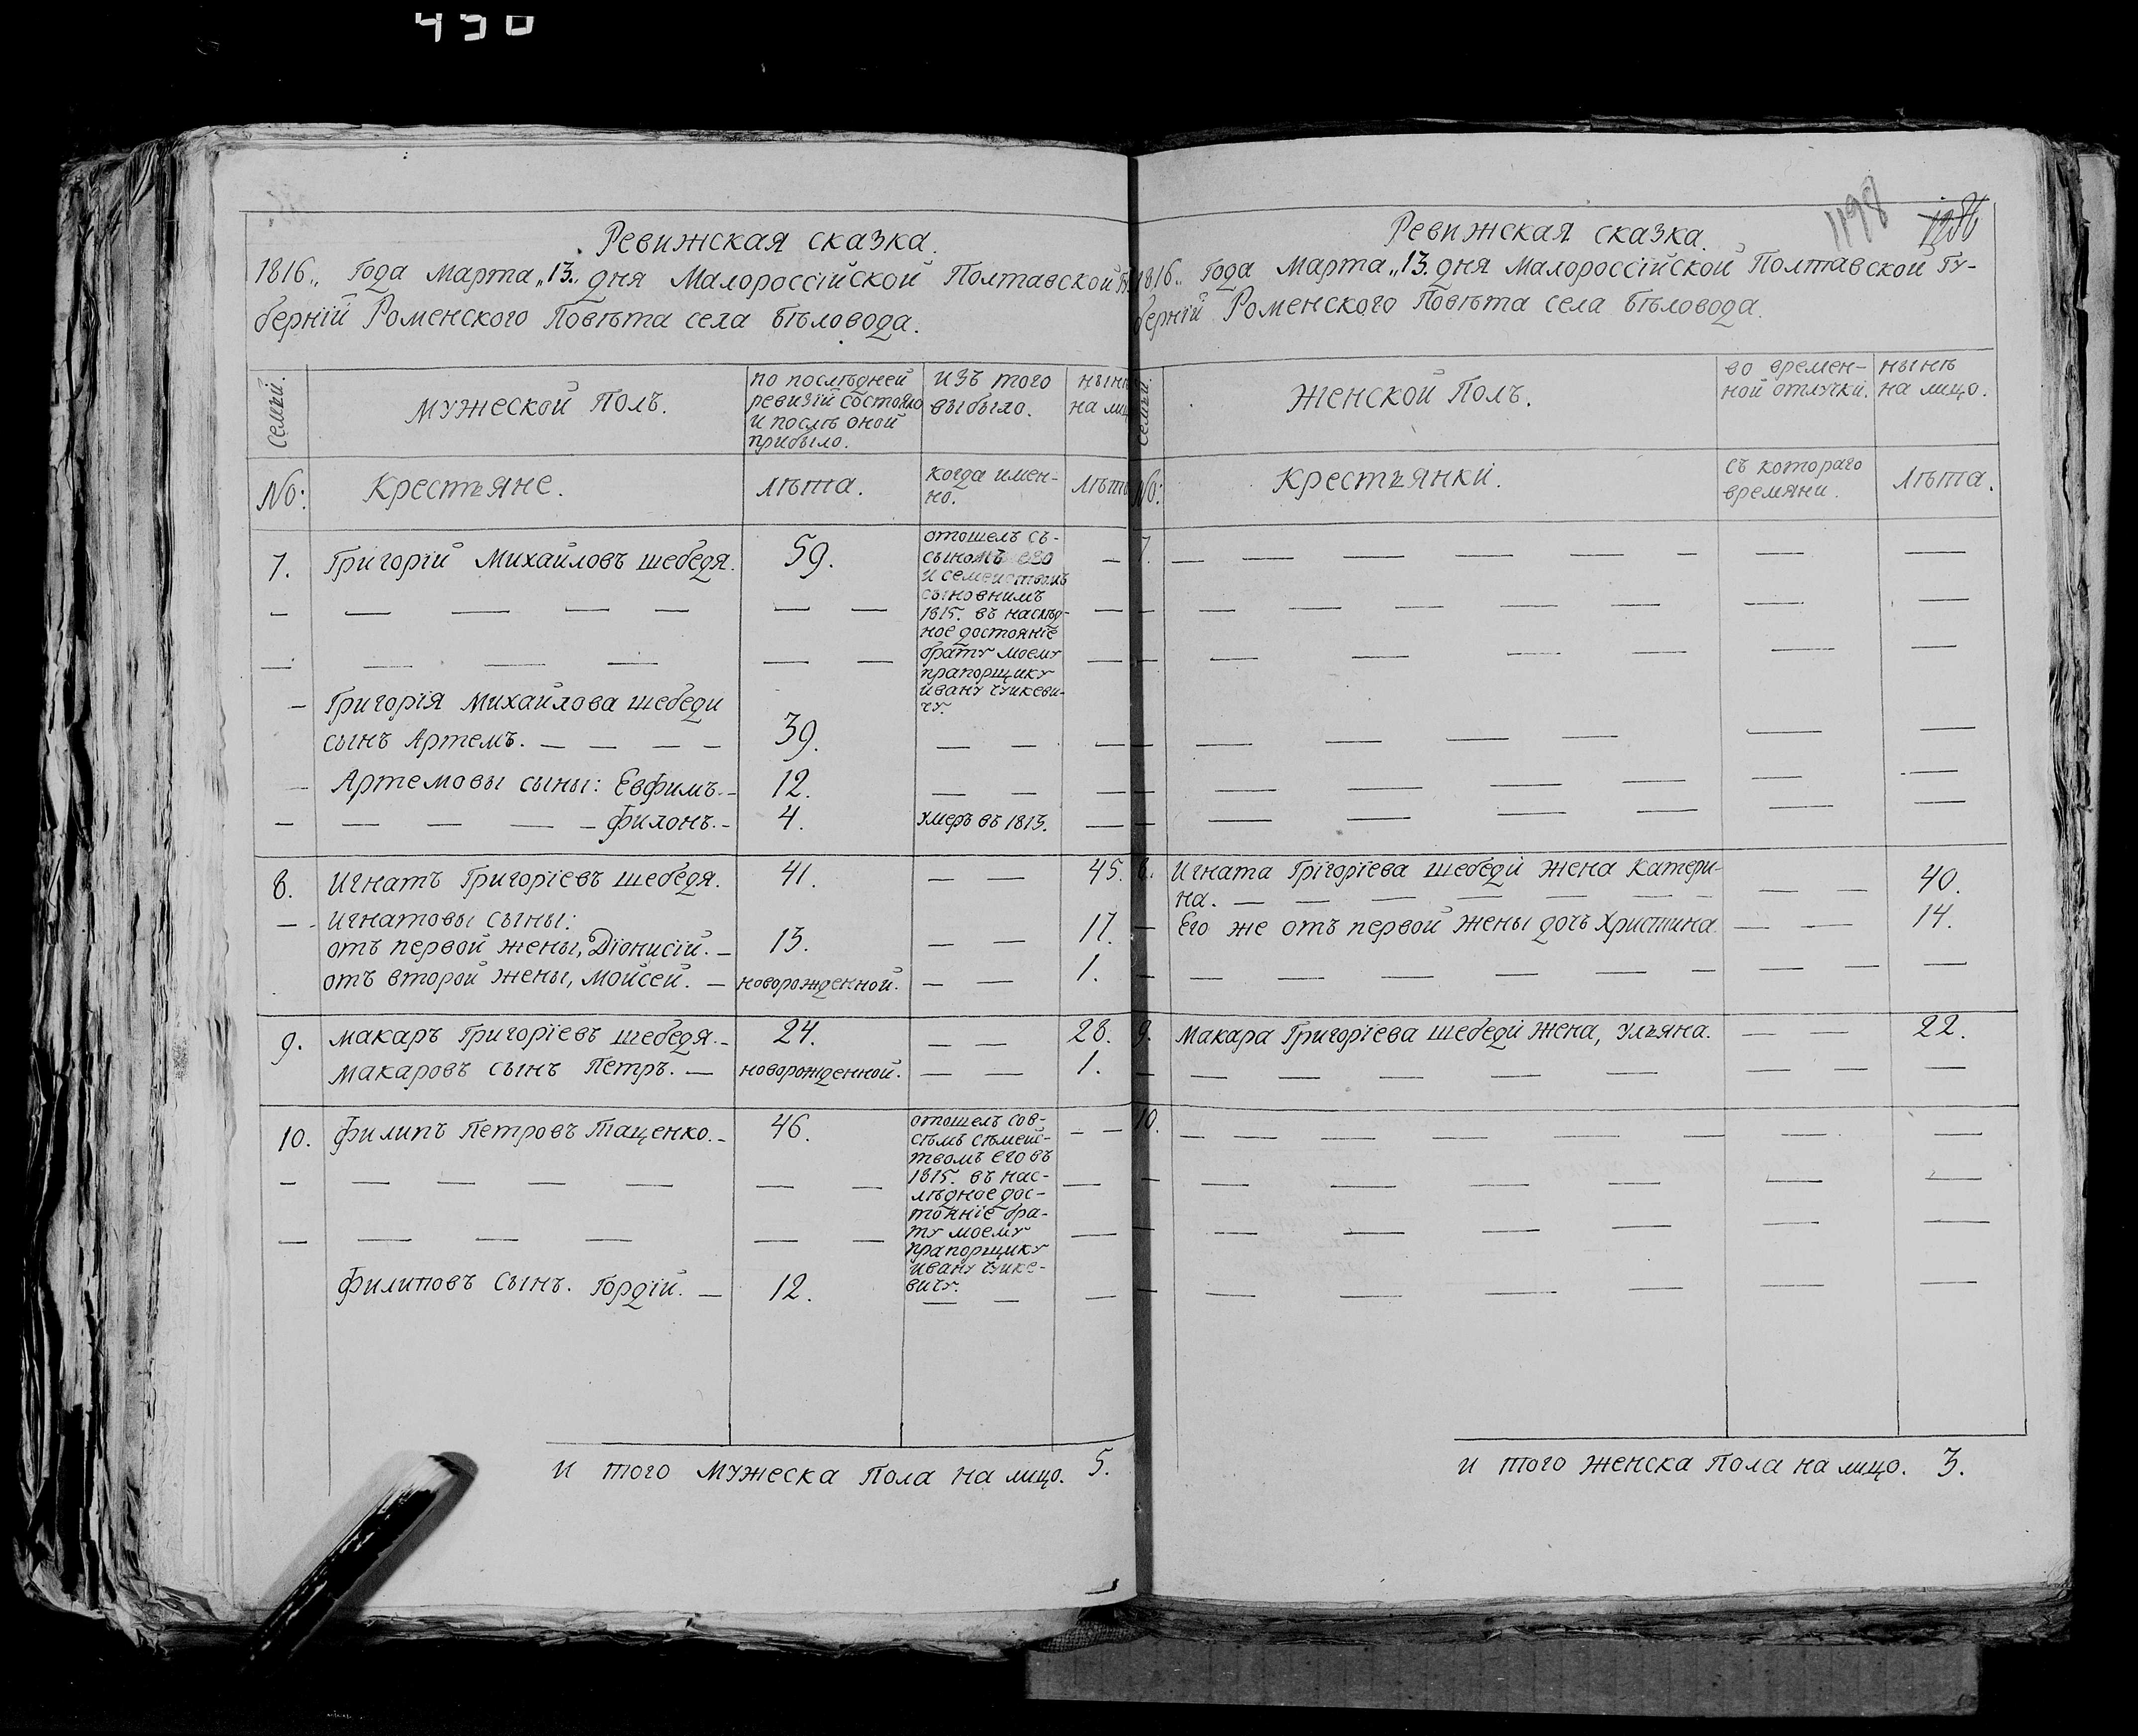 450
Ревижская сказка.
1816,, Года Марта ,,13,, дня Малороссійской Полтавской Гу-
берніи Роменского Повѣта села Бѣловода.
Семьи.
мужеской Полъ.
по послѣдней
ревизіи состояло
и послѣ оной
прибыло.
изъ того
выбыло.
нынѣ
на лицо
№:
Крестьяне.
лѣта.
когда имен-
но.
лѣта
7. Григорій Михайловъ шебедя. 59.
отошелъ съ-
сыномъ его
и семействомъ
сыновнимъ
1815. въ наслѣд-
ное достояніе
брату моему
прапорщику
ивану чуйкеви-
чу.
— Григорія Михайлова шебеди
сынъ Артемъ. — — — — 39. — — —
— Артемовы сыны: Евфимъ. — 12. — — —
— — — — — Филонъ. — 4. умеръ въ 1813. —
8. Игнатъ Григоріевъ шебедя. 41. — — 45.
— Игнатовы сыны:
отъ первой жены, Діонисій. — 13. — — 17.
отъ второй жены, Мойсей. — новорожденной. — — 1.
9. Макаръ Григоріевъ шебедя. — 24. — — 28.
Макаровъ сынъ Петръ. — новорожденной. — — 1.
10. Филипъ Петровъ Таценко. — 46. — —
отошелъ сов-
сѣмъ сѣмейс-
твомъ его въ
1815. въ нас-
лѣдное дос-
тояніе бра-
ту моему
прапорщику
ивану чуйке-
вичу.
Филиповъ сынъ. Гордій. — 12. — — —
и того мужеска Пола на лицо. 5.
1198 1286
Ревижская сказка.
1816,, Года Марта ,,13. дня Малороссійской Полтавской Гу-
берніи Роменского Повѣта села Бѣловода.
Семьи.
Женской Полъ.
во времен-
ной отлучки.
нынѣ
на лицо.
№:
Крестьянки.
съ котораго
времяни.
лѣта.
7. — — — — — — —
8. Игната Григоріева шебеди жена Катери-
на. — — — — — — — — 40.
— Его же отъ первой жены дочь Христина. — — 14.
9. Макара Григоріева шебеди жена, Ульяна. — — 22.
10. — — — — — — — —
и того женска Пола на лицо. 3.